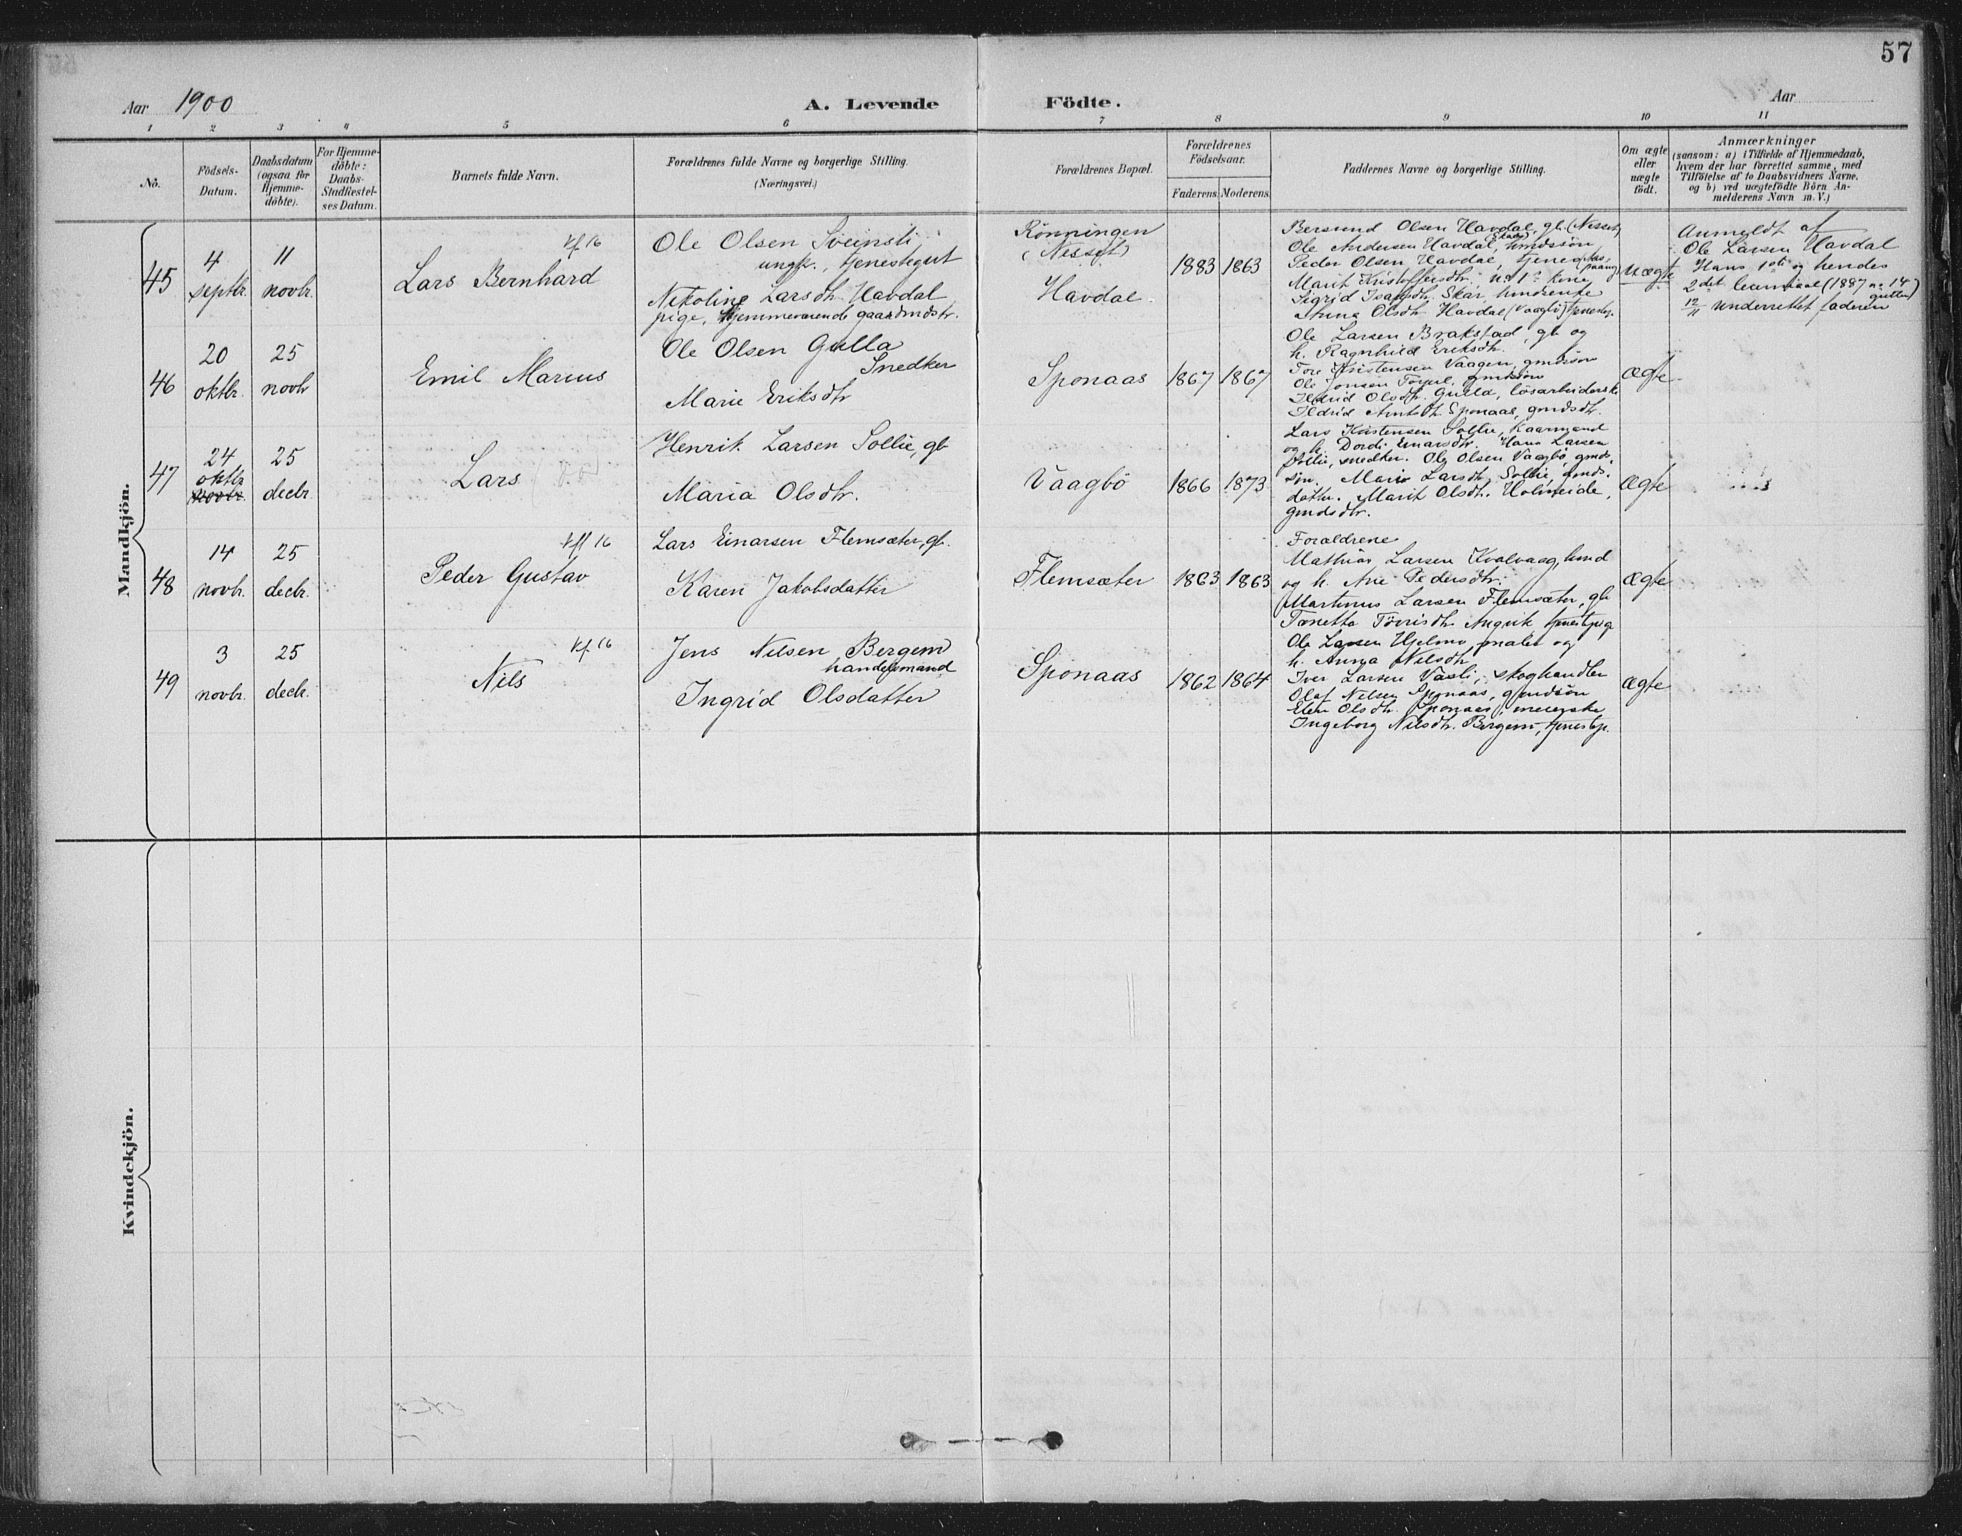 57
Aar 1900
A. Levende Födte.
Aar
1 2 3 4 5 6 7 8 9 10 11
No.
Födsels-Datum.
Daabsdatum (ogsaa for Hjemme-döbte).
For Hjemme-döbte: Daabs-Stadfæstel-ses Datum.
Barnets fulde Navn.
Forældrenes fulde Navne og borgerlige Stilling. (Næringsvei.)
Forældrenes Bopæl.
Forældrenes Födselsaar.
Faderens. Moderens.
Faddernes Navne og borgerlige Stilling.
Om ægte eller uægte födt.
Anmærkninger
(saasom: a) i Tilfælde af Hjemmedaab,
hvem der har forrettet samme, med
Tilföielse af to Daabsvidners Navne,
og b) ved uægtefödte Börn An-
melderens Navn m. V.)
Mandkjön.
45
4 septbr.
11 novbr.
Lars Bernhard
Ole Olsen Sveinsli
ungk., tjenestegut
Nikoline Larsdtr. Havdal
pige, hjemmeværende gaardmdstr.
Rönningen
(Nesset)
Havdal
1883 1863
Bersvend Olsen Havdal, gb. (Nesset)
Ole Andersen Havdal, kmdssön,
Peder Olsen Havdal,
Marit Kristoffersdtr., n. 1s kone
Sigrid Isaksdtr. Skar
Anna Olsdtr. Havdal (Vaagbö) tjenestep.
uægte
Anmeldt af
Ole Larsen Havdal
Hans 1ste og hendes
2det leiermaal (1887 no 14 gutter)
12/11 underrettet faderen
46
20 oktbr.
25 novbr
Emil Marius
Ole Olsen Gulla
Snedker
Marie Eriksdtr
Sponaas
1867 1867
Ole Larsen Brakstad, gb og
h. Ragnhild Eriksdtr.
Tore Kristensen Vaagen, gmdssön
Ole Jonsen
Ildrid Olsdtr. Gulla, lösarbeiderske
Ildrid Arntsdtr. Sponaas, gmdsdtr.
ægte
47
24 oktbr novbr.
25 decbr.
Lars
Henrik Larsen Sollie, gb
Maria Olsdtr.
Vaagbö
1866 1873
Lars Kristensen Sollie, kaarmand
og h. Dordi Einarsdtr. Hans Larsen
Sollie, snedker. Ole Olsen Vaagbö, gmds.
sön, Marie Larsdtr. Sollie, gmds-
datter. Marit Olsdtr. Holmeide,
gmdsdtr.
ægte
48
14 novbr.
25 decbr.
Peder Gustav
Lars Einarsen Flemsæter, gb.
Karen Jakobsdatter
Flemsæter
1863 1863
Forældrene
Mathias Larsen Kvalvaag, kmd
og h. Ane Pedersdtr.
Martinus Larsen Flemsæter, gb
Tanetta Törrisdtr. Angvik tjenestpige
ægte
49
3 novbr.
25 decbr.
Nils
Jens Nilsen Bergem
handelsmand
Ingrid Olsdatter
Sponaas
1862 1864
Ole Larsen Hjelmo, maler og
h. Anna Nilsdtr
Iver Larsen Vasli, skoghandler
Olaf Nilsen Sponaas, gmdssön
Elen Olsdtr. Sponaas, meierske
Ingeborg Nilsdtr. Bergem, tjenestep.
ægte
Kvindekjön.